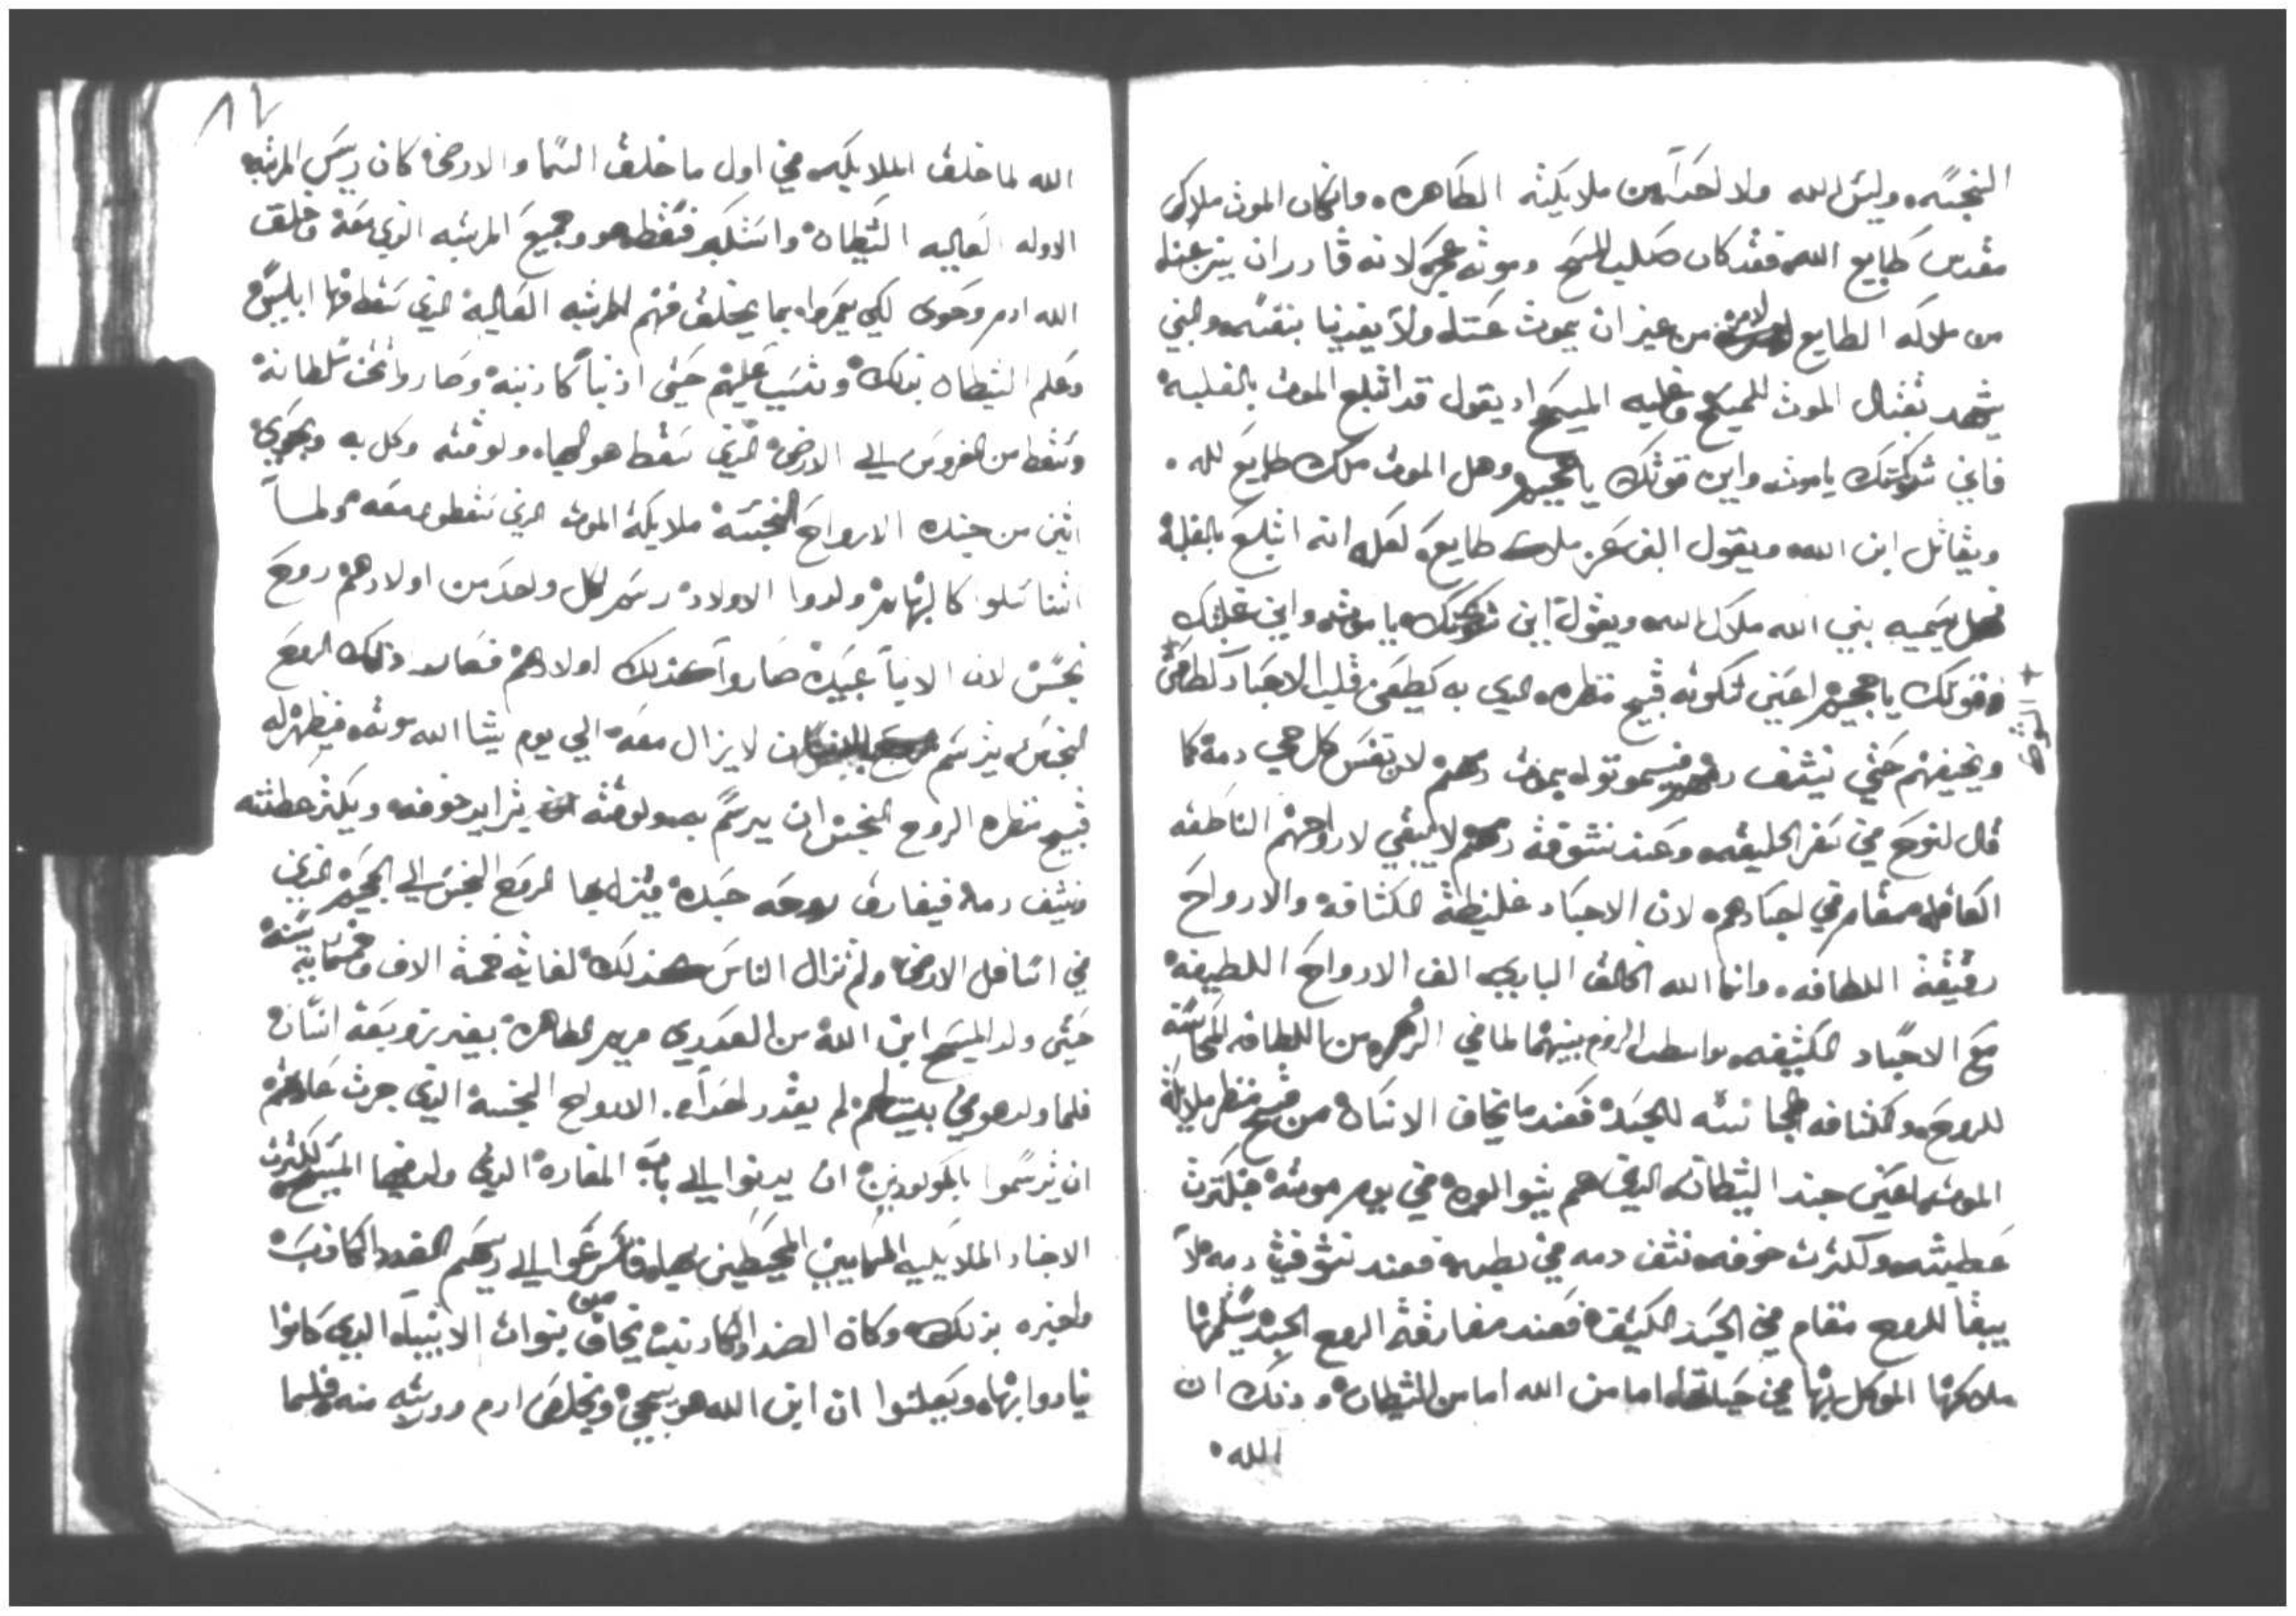 النجسه وليس لله ولا لاحداً من ملايكته الطاهره وان كان الموت ملاك
مقدس طايع الله فقد كان صلب المسيح وموته عجز لانه قادر ان ينزعنا
من ملاكه الطايع من غير ان يموت عنا ولا يفدينا بنفسه والنبي
يشهد بقتال الموت للمسيح وغلبه المسيح اد يقول قد ابتلع الموت بالغلبه
فاين شوكتك ياموت واين قوتك يا جحيم وهل الموت ملاك طايع لله
ويقاتل ابن الله ويقول النبي عن ملاك طايع لله انه ابتلع بالغلبه
فهل يسميه نبي الله ملاك الله ويقول اين شوكتك ياموت واين غلبتك
وقوتك يا جحيم اعني شوكته قبيح منظره الدي به يطعن قلب الاجساد
ويخيفهم حتي ينشف دمهم يموت لان نفس كل حي دمه كما
قال لنوح في سفر الخليقه وعند نشوفة دمهم لا يبقي لارواحهم الناطقه
العاقله مقام في اجسادهم لان الاجساد غليظة الكثافه والارواح
رقيقة اللطافه وانما الله الخالق الباري الف الارواح اللطيفه
مع الاجساد الكثيفه بواسطة الدم بينهما لما في الدم من اللطافه المجانسه
للروح والكثافه المجانسه للجسد فعند ما يخاف الانسان من قبيح منظر ملايكة
الموت اعني جند الشيطان الدين هم يتوالوه في يوم موته فبكترت
عطشه وكترت خوفه نشف دمه في بطنه فعند نشوفت دمه لا
يبقا للروح مقام في الجسد الكثيف فعند مفارقة الروح الجسد يتسلمها
ملاكها الموكل بها في حياتها اما من الله اما من الشيطان ودلك ان
الله
٨٧
الله لما خلق الملايكه في اول ما خلق السما والارض كان ريس المرتبه
الاوله العاليه الشيطان واستكبر فسقط هو وجميع المرتبه الدي معه وخلق
الله ادم وحوى لكي يعمروا بما يخلف منهم المرتبه العاليه الدي سقط منها ابليس
وعلم الشيطان بدلك وتسبب عليهم حتى ادنبا كادنبه وصاروا تحت سلطانه
وسقط من الفردوس الي الارض الدي سقط هو اليها ولوقته وكل به وبحوى
اثنين من جنده الارواح النجسه ملايكة الموت الدي سقطوا معه ولما
اتناسلوا كالبهايم وولدوا الاولاد رسم لكل واحد من اولادهم روح
نجس لان الابا عبيده صاروا كدلك اولادهم فصار دلك الروح
النجس يترسم لا يزال معه الي يوم يشا الله موته فيظهر له
قبيح منظره الروح النجس ان يرسم به ولوقته يتزايد خوفه ويكتر عطشه
فينشف دمه فيفارق روحه جسده فينزل بها الروح النجس الي الجحيم الدي
في اسافل الارض ولم تزال الناس كدلك لغاية خمسة الاف وخمسمايه سنه
حتى ولد المسيح ابن الله من العدري مريم الطاهره بغير زريعة انسان
فلما ولد هو في بيت لحم لم يقدر احداً من الارواح النجسه الدي جرت عادتهم
ان يترسموا بالمولودين ان يدنوا الي باب المغاره الدي ولد فيها المسيح لكترت
الاجناد الملايكيه السماييين المحيطين بها فاسرعوا الي ريسهم الضدد الكادب
واخبره بدلك وكان الضد الكادب يخاف من نبوات الانبيا الدي كانوا
ينادوا بها ويعلنوا ان ابن الله هو يجي ويخلص ادم ودريته منه فلما